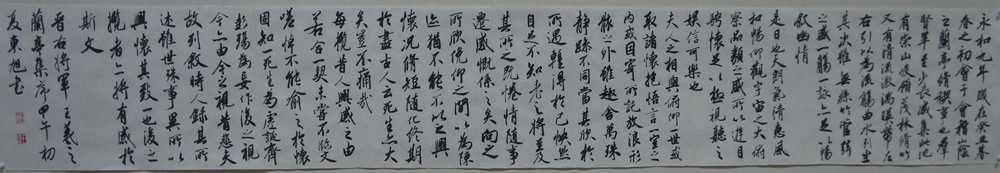 永和九年歲在癸丑暮
春之初會于會稽山陰
之蘭亭脩禊事也群
賢畢至少長咸集此地
有崇山峻領茂林脩竹
又有清流激湍映帶左
右引以為流觴曲水列坐
其次雖無絲竹管絃
之盛一觴一詠亦足以暢
敘幽情
是日也天朗氣清惠風
和暢仰觀宇宙之大俯
察品類之盛所以遊目
騁懷足以極視聽之
娛信可樂也
夫人之相與俯仰一世或
取諸懷抱悟言一室之
內或因寄所託放浪形
骸之外雖趣舍萬殊
靜躁不同當其欣於
所遇蹔得於己快然
自足不知老之將至及
其所之既惓情隨事
遷感慨係之矣向之
所欣俛仰之間以為陳
迹猶不能不以之興
懷況脩短隨化終期
於盡古人云死生亦大
矣豈不痛哉
每攬昔人興感之由
若合一契未嘗不臨文
嗟悼不能喻之於懷
固知一死生為虛誕齊
彭殤為妄作後之視
今亦由今之視昔悲夫
故列敘時人錄其所
述雖世殊事異所以
興懷其致一也後之
攬者亦將有感於
斯文
晉右將軍王羲之
蘭亭集序甲午初
夏東旭書